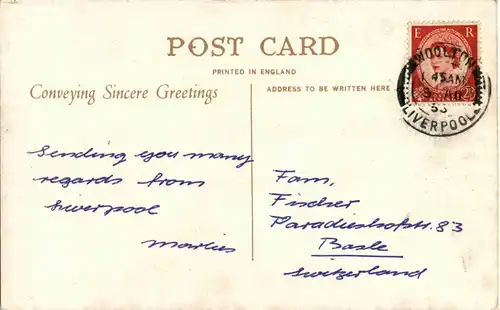 POST CARD
PRINTED IN ENGLAND
Conveying Sincere Greetings
ADDRESS TO BE WRITTEN HERE
E R
WOOLTON
45AM
53
LIVERPOOL
Sending you many
regards from
Liverpool
Marlies
Fam,
Fischer
Paradieshofstr. 83
Basle
Switzerland